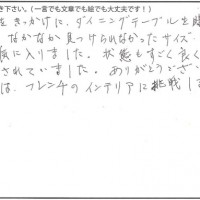 き下さい。(一言でも文章でも絵でも大丈夫です！)
をきっかけに、ダイニングテーブルを
なかなか見つけられなかったサイズ
気に入りました。状態もすごく良く
されていました。ありがとうござい
は、フレンチのインテリアに挑戦し